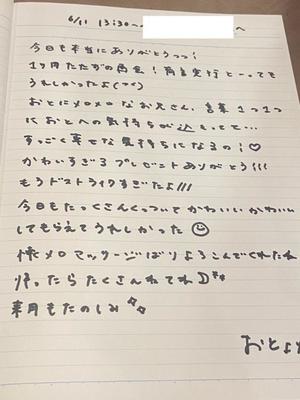 6/11 13:30〜 へ
今日も本当にありがとうっっ!
1ヶ月たたずの再会!有言実行とーっても
うれしかったよ(´˘`)
おとにメロメロなお兄さん、言葉1つ1つ
におとへの気持ちが込もってて…
すっごく幸せな気持ちになるの!♡
かわいすぎるプレゼントありがとう!!!
もうドストライクすぎだよ!!!
今日もたっくさんくっついてかわいいかわいい
してもらえてうれしかった☺
懐メロマッサージばりよろこんでくれたね
帰ったらたくさんねてね
来月もたのしみ
おとより